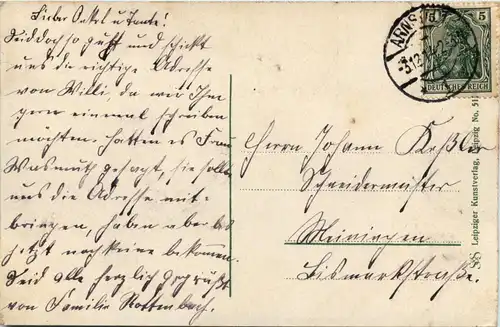 Lieber Onkel u Tante!
Seid doch so gut und schickt
uns die richtige Adresse
von Willi, da wir Ihm
gern einmal schreiben
möchten. hatten es Frau
Wasmuth gesagt, sie sollte
uns die Adresse mit-
bringen, haben aber bis
jetzt noch keine bekommen.
Seid alle herzlich gegrüßt
von Familie Rottenbach.
ARNS
5
5
DEUTSCHES REICH
Herrn Johann Keßler
Schneidermeister
Meiningen
Bismarkstraße.
Leipziger Kunstverlag, Leipzig No. 51